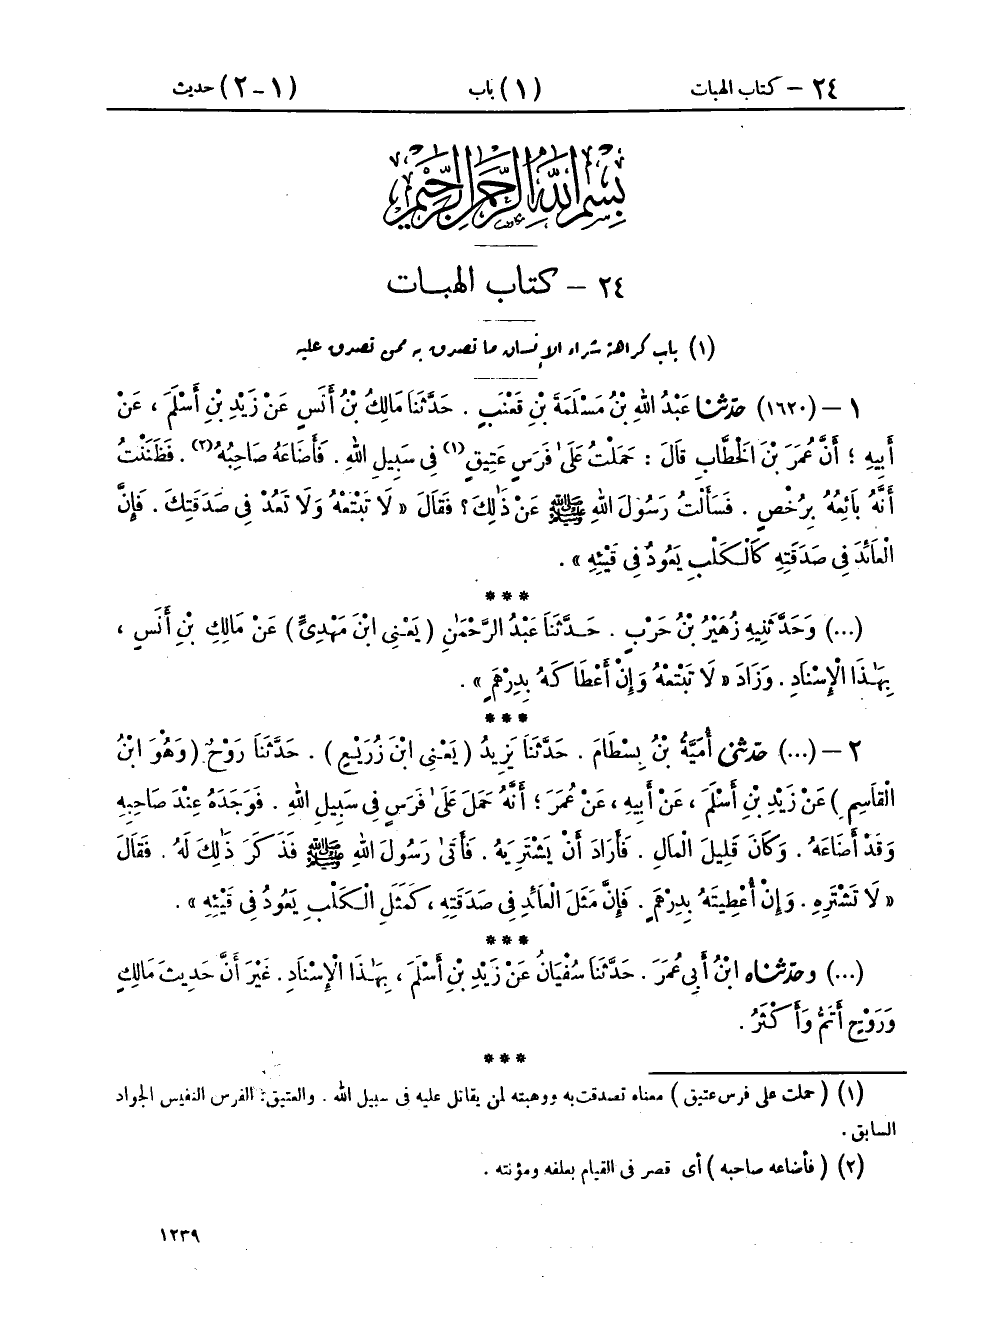 ٢٤ – كتاب الهبات (١) باب (١-٢) حديث
بسم الله الرحمن الرحيم
٢٤ – كتاب الهبات
(١) باب كراهة شراء الإنسان ما تصدق به ممن تصدق عليه
١ – (١٦٢٠) حَدَّثَنَا عَبْدُ اللهِ بْنُ مَسْلَمَةَ بْنِ قَعْنَبٍ . حَدَّثَنَا مَالِكُ بْنُ أَنَسٍ عَنْ زَيْدِ بْنِ أَسْلَمَ ، عَنْ
أَبِيهِ ؛ أَنَّ عُمَرَ بْنَ الخَطَّابِ قَالَ : حَمَلْتُ عَلَىٰ فَرَسٍ عَتِيقٍ(١) فِى سَبِيلِ اللهِ . فَأَضَاعَهُ صَاحِبُهُ(٢) . فَظَنَنْتُ
أَنَّهُ بَائِعُهُ بِرُخْصٍ . فَسَأَلْتُ رَسُولَ اللهِ ﷺ عَنْ ذَٰلِكَ ؟ فَقَالَ « لَا تَبْتَعْهُ وَلَا تَعُدْ فِى صَدَقَتِكَ . فَإِنَّ
الْعَائِدَ فِى صَدَقَتِهِ كَالْكَلْبِ يَعُودُ فِى قَيْئِهِ » .
***
(...) وَحَدَّثَنِيهِ زُهَيْرُ بْنُ حَرْبٍ . حَدَّثَنَا عَبْدُ الرَّحْمَٰنِ ( يَعْنِى ابْنَ مَهْدِىٍّ ) عَنْ مَالِكِ بْنِ أَنَسٍ ،
بِهَٰذَا الْإِسْنَادِ . وَزَادَ « لَا تَبْتَعْهُ وَإِنْ أَعْطَاكَهُ بِدِرْهَمٍ » .
***
٢ – (...) حَدَّثَنِى أُمَيَّةُ بْنُ بِسْطَامَ . حَدَّثَنَا يَزِيدُ ( يَعْنِى ابْنَ زُرَيْعٍ ) . حَدَّثَنَا رَوْحٌ ( وَهُوَ ابْنُ
الْقَاسِمِ ) عَنْ زَيْدِ بْنِ أَسْلَمَ ، عَنْ أَبِيهِ ، عَنْ عُمَرَ ؛ أَنَّهُ حَمَلَ عَلَىٰ فَرَسٍ فِى سَبِيلِ اللهِ . فَوَجَدَهُ عِنْدَ صَاحِبِهِ
وَقَدْ أَضَاعَهُ . وَكَانَ قَلِيلَ الْمَالِ . فَأَرَادَ أَنْ يَشْتَرِيَهُ . فَأَتَىٰ رَسُولَ اللهِ ﷺ فَذَكَرَ ذَٰلِكَ لَهُ . فَقَالَ
« لَا تَشْتَرِهِ . وَإِنْ أُعْطِيتَهُ بِدِرْهَمٍ . فَإِنَّ مَثَلَ الْعَائِدِ فِى صَدَقَتِهِ ، كَمَثَلِ الْكَلْبِ يَعُودُ فِى قَيْئِهِ » .
***
(...) وحَدَّثَنَاه ابْنُ أَبِى عُمَرَ . حَدَّثَنَا سُفْيَانُ عَنْ زَيْدِ بْنِ أَسْلَمَ ، بِهَٰذَا الْإِسْنَادِ . غَيْرَ أَنَّ حَدِيثَ مَالِكٍ
وَرَوْحٍ أَتَمُّ وَأَكْثَرُ .
***
(١) ( حملت على فرس عتيق ) معناه تصدقت به ووهبته لمن يقاتل عليه فى سبيل الله . والعتيق : الفرس النفيس الجواد
السابق .
(٢) ( فأضاعه صاحبه ) أى قصر فى القيام بعلفه ومؤنته .
١٢٣٩